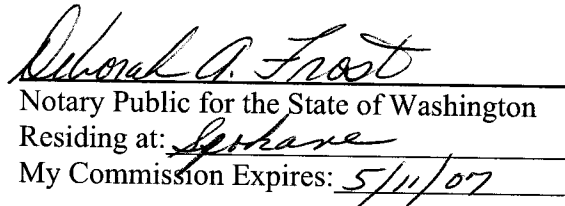 Deborah A. Frost
Notary Public for the State of Washington
Residing at: Spokane
My Commission Expires: 5/11/07